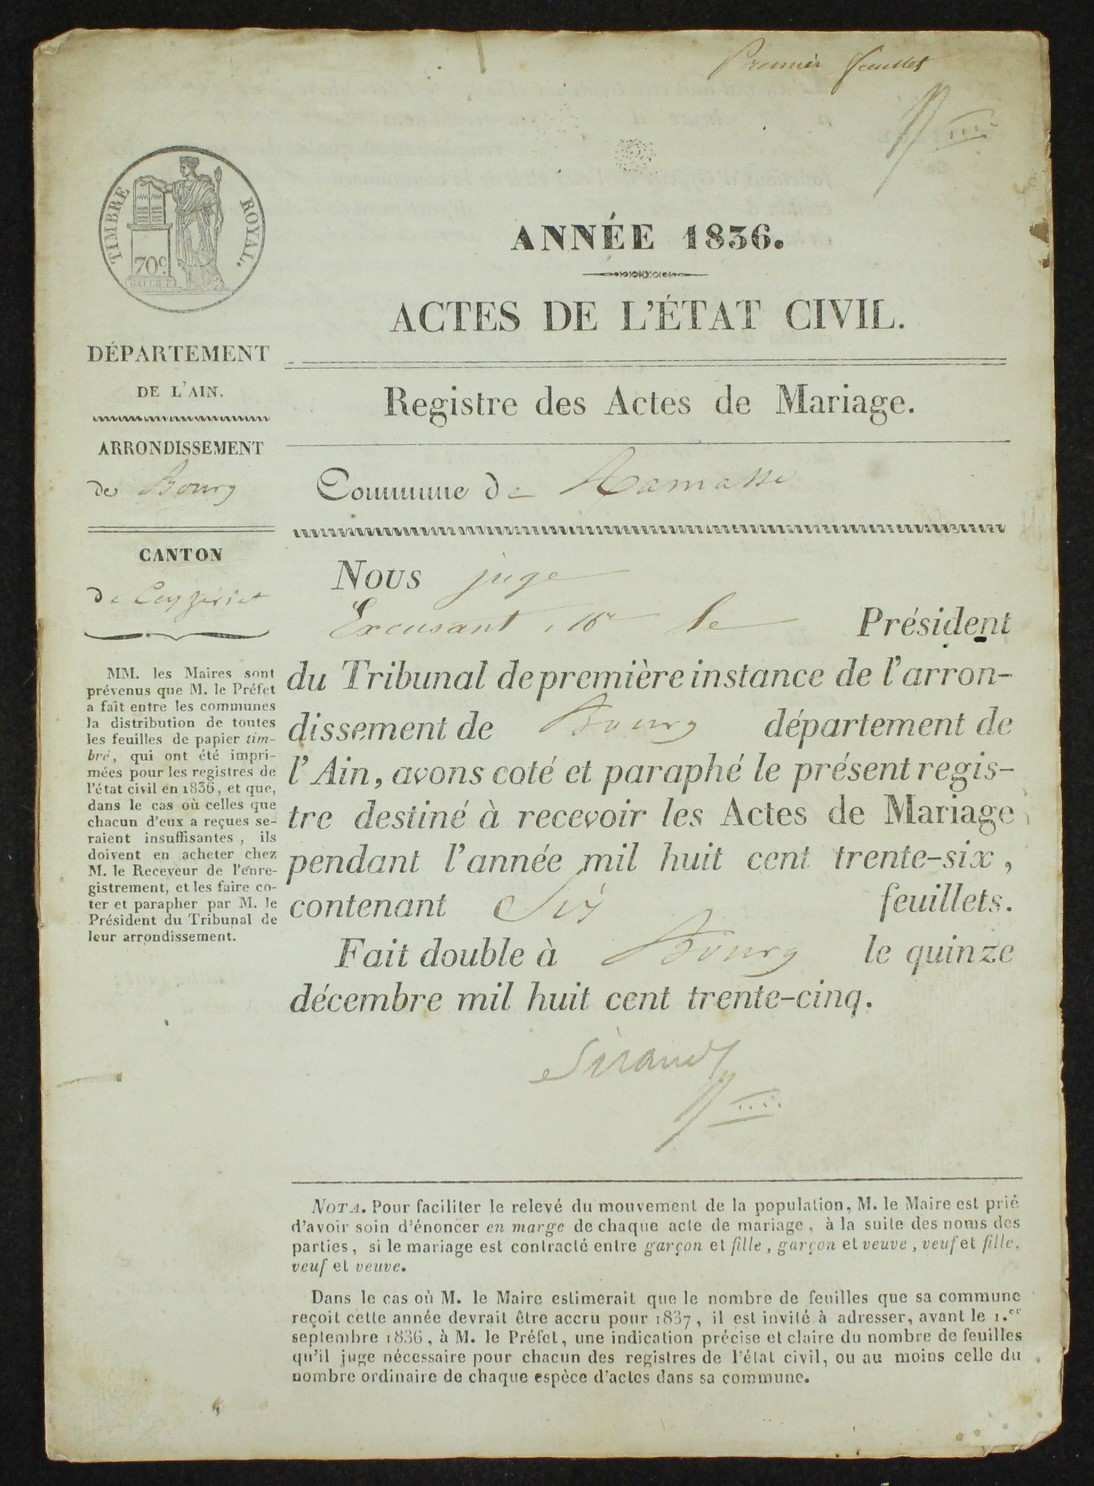 Premier feuillet
TIMBRE ROYAL.
70 c
ANNÉE 1836.
ACTES DE L'ÉTAT CIVIL.
DÉPARTEMENT
DE L'AIN.
Registre des Actes de Mariage.
ARRONDISSEMENT
de Bourg
Commune de Ramasse
CANTON
de Ceyzeriat
Nous juge
Excusant Mr le Président
du Tribunal de première instance de l'arron-
dissement de Bourg département de
l'Ain, avons coté et paraphé le présent regis-
tre destiné à recevoir les Actes de Mariage
pendant l'année mil huit cent trente-six,
contenant Six feuillets.
Fait double à Bourg le quinze
décembre mil huit cent trente-cinq.
Sirand
MM. les Maires sont
prévenus que M. le Préfet
a fait entre les communes
la distribution de toutes
les feuilles de papier tim-
bré, qui ont été impri-
mées pour les registres de
l'état civil en 1836, et que,
dans le cas où celles que
chacun d'eux a reçues se-
raient insuffisantes, ils
doivent en acheter chez
M. le Receveur de l'enre-
gistrement, et les faire co-
ter et parapher par M. le
Président du Tribunal de
leur arrondissement.
NOTA. Pour faciliter le relevé du mouvement de la population, M. le Maire est prié
d'avoir soin d'énoncer en marge de chaque acte de mariage, à la suite des noms des
parties, si le mariage est contracté entre garçon et fille, garçon et veuve, veuf et fille,
veuf et veuve.
Dans le cas où M. le Maire estimerait que le nombre de feuilles que sa commune
reçoit cette année devrait être accru pour 1837, il est invité à adresser, avant le 1.er
septembre 1836, à M. le Préfet, une indication précise et claire du nombre de feuilles
qu'il juge nécessaire pour chacun des registres de l'état civil, ou au moins celle du
nombre ordinaire de chaque espèce d'actes dans sa commune.